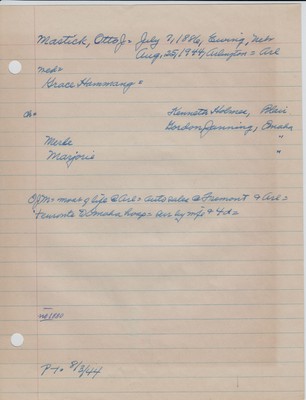 Mastick, Otto J= July 9, 1886, Ewing, Nebr
Aug. 25, 1944, Arlington = Arl
med=
Grace Hammang =
ch=
Kenneth Holmes, Blair
Gordon Janning, Omaha
Merle "
Marjorie "
OJM= most of life @ Arl= auto sales @ Fremont & Arl=
Omaha hosp= sur by wife & 4 d=
P-T= 8/3/44